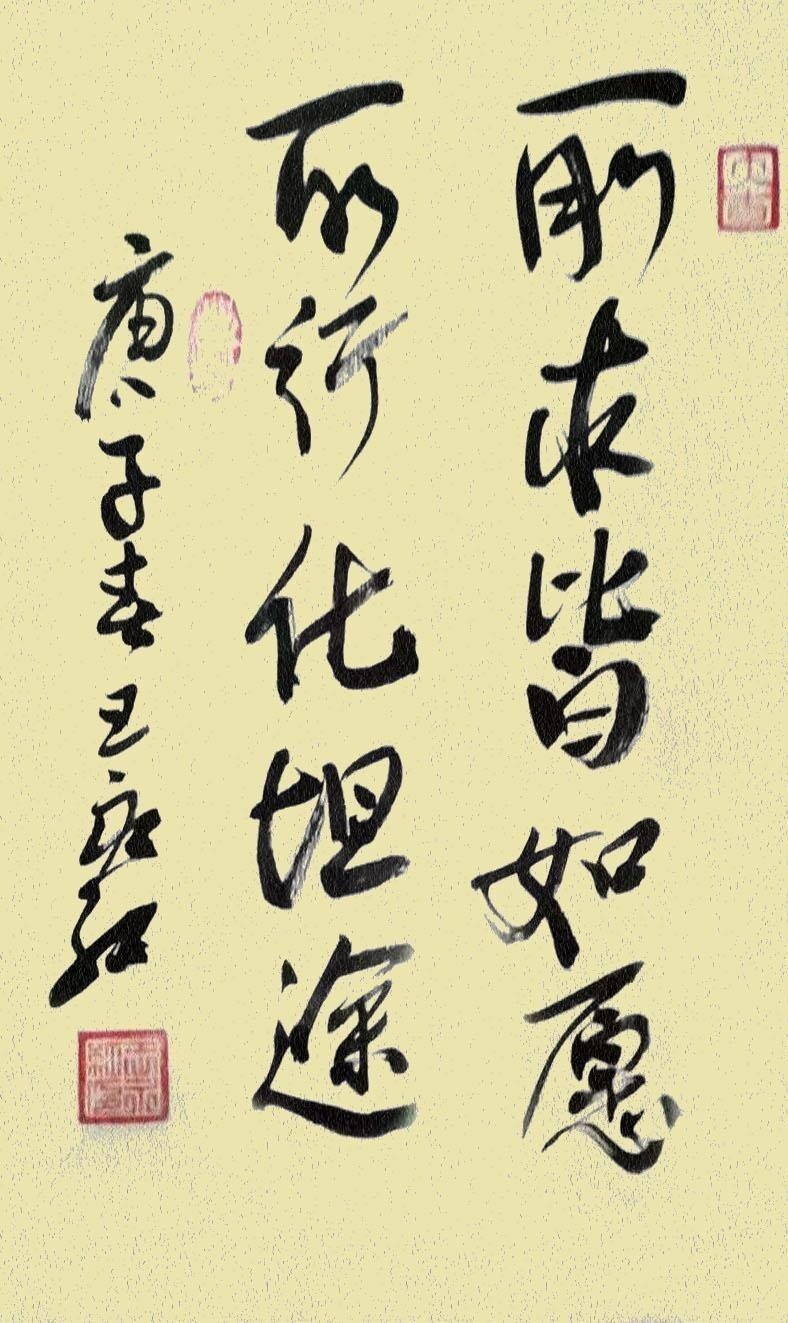 所求皆如愿
所行化坦途
庚子春王永红